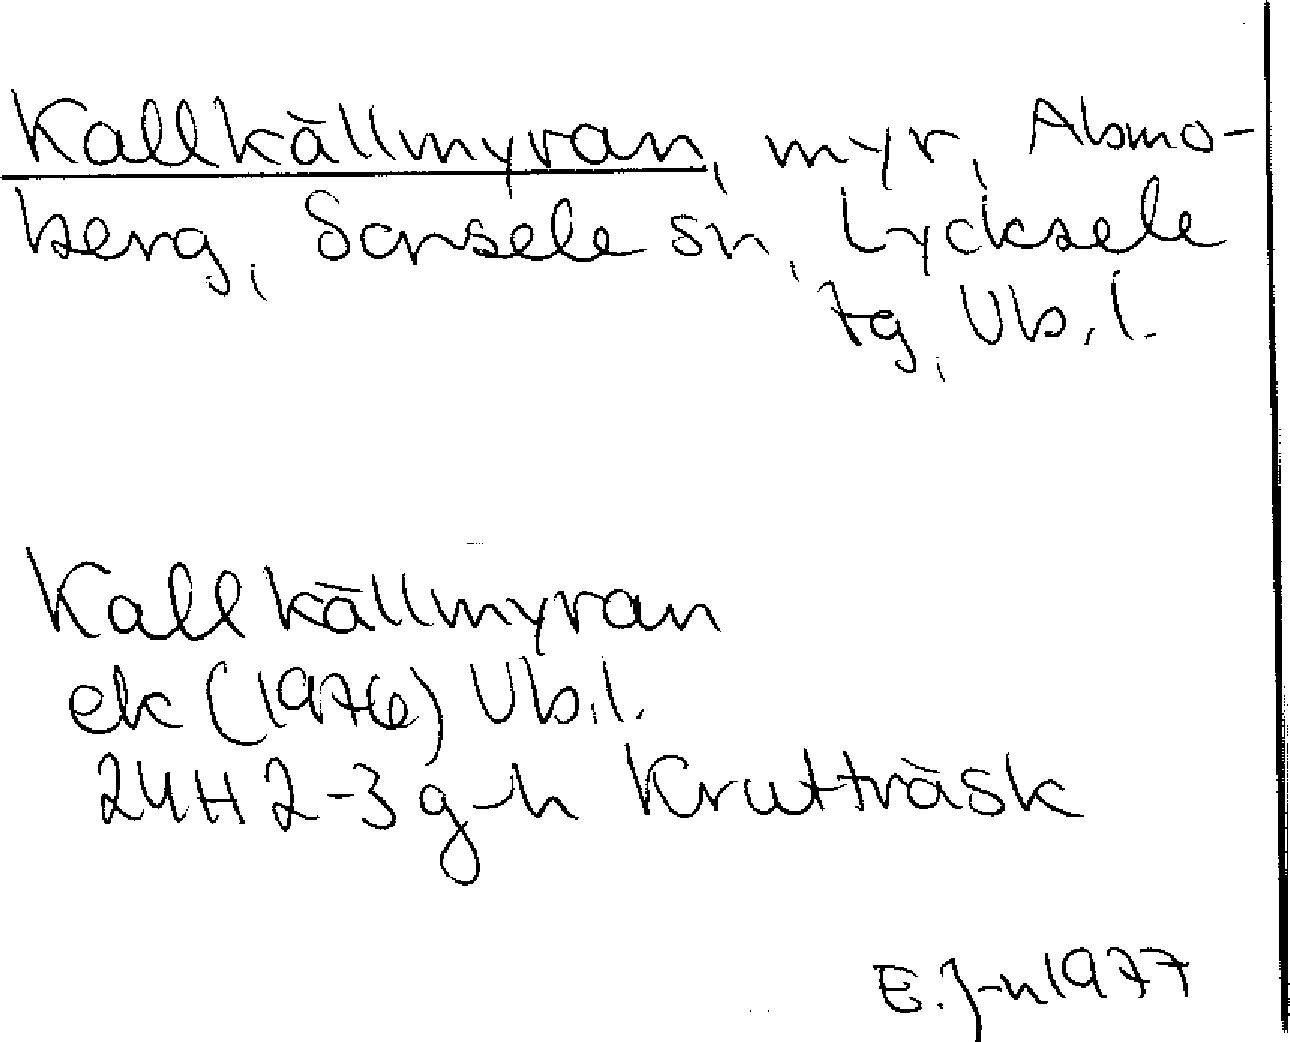 Kallkällmyran, myr, Absmo-
berg, Sorsele sn, Lycksele
tg, Vb.l.
Kallkällmyran
ek (1976) Vb.l.
24H 2-3 g-h Krutträsk
E. J-n 1977